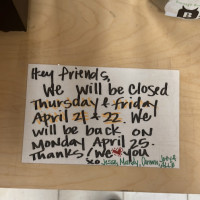 Hey friends,
We will be closed
Thursday & friday
April 21 + 22. We
will be back on
Monday April 25.
Thanks! We you